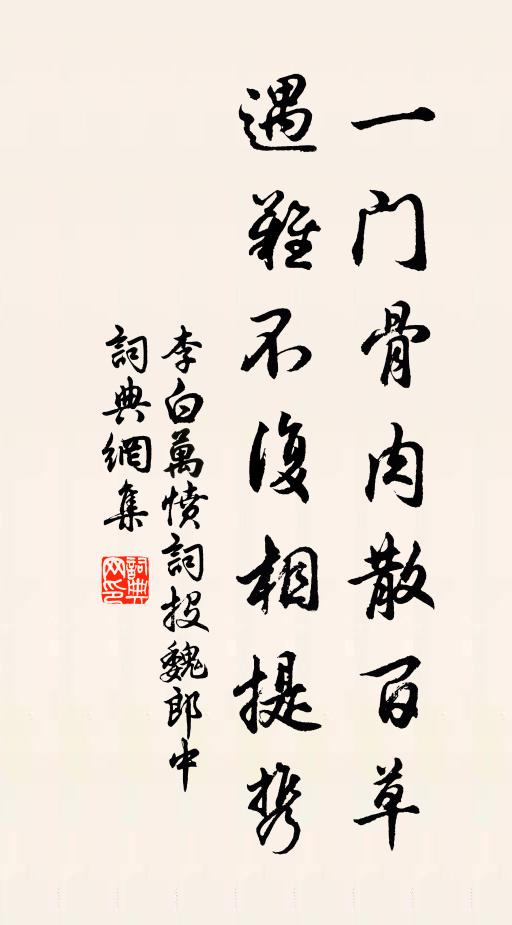 一门骨肉散百草
遇難不復相提携
李白萬憤詞投魏郎中
詞典網集
詞典网印